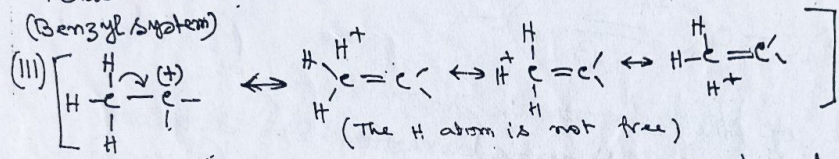 (Benzyl system)
(III) [ H H–C–C– (+) H ↔ H H+ C=C H ↔ H H+ C=C H ↔ H H–C=C H+ ]
(The H atom is not free)